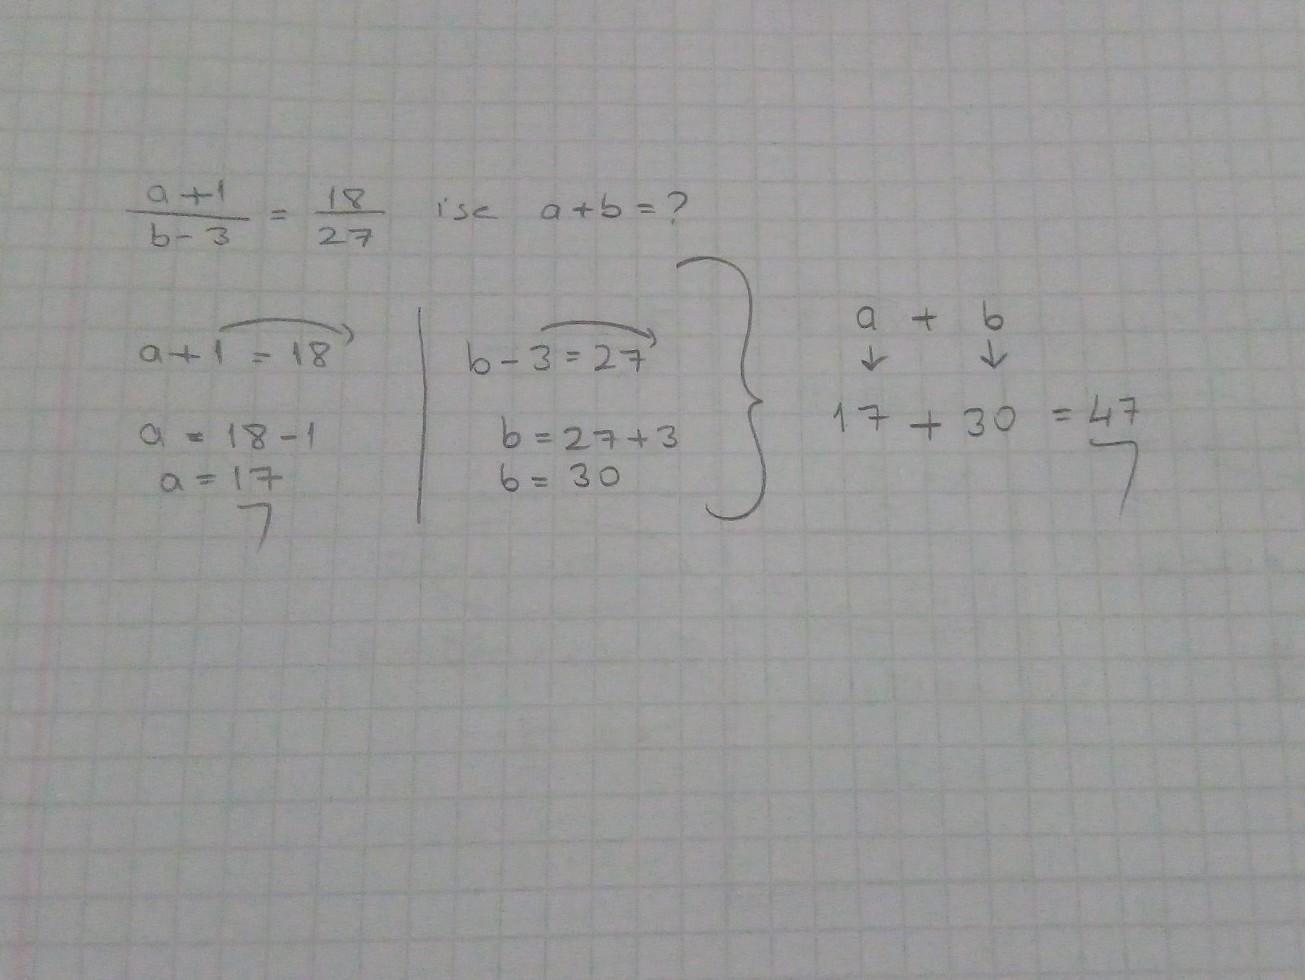 a+1/b-3 = 18/27 ise a+b=?
a+1=18
a=18-1
a=17
b-3=27
b=27+3
b=30
a + b
↓ ↓
17+30=47